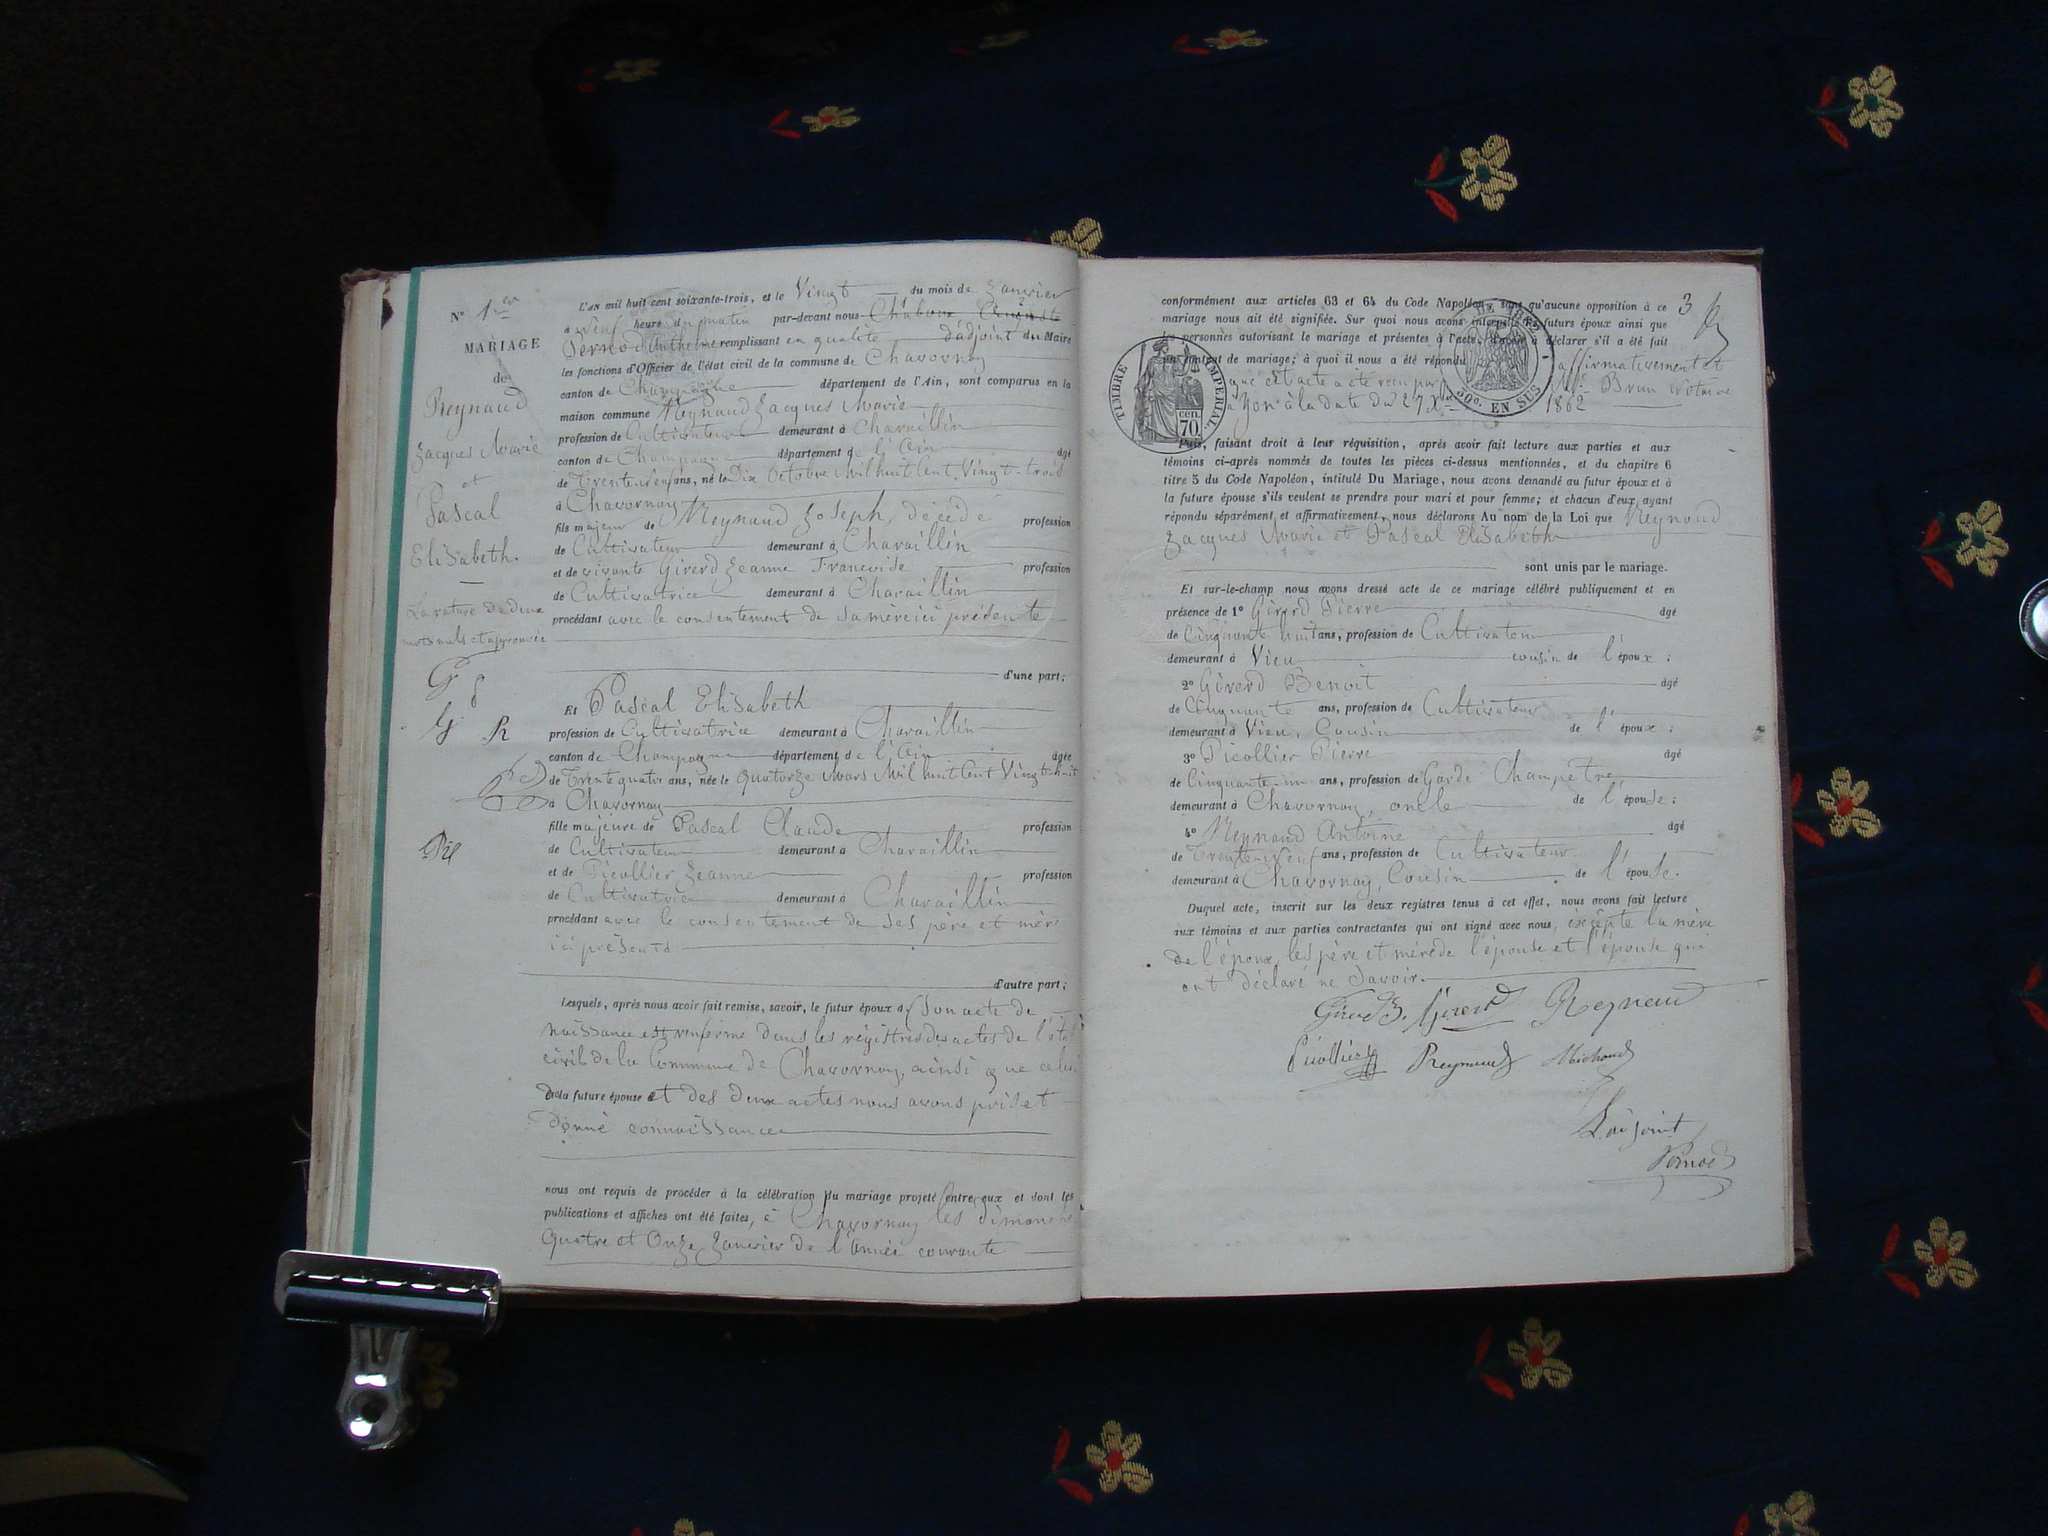 N° 1er
MARIAGE
de
Reynaud
Jacques Marie
et
Pascal
Elisabeth.
La rature de deux
mots nuls et approuvée
G
G R
Pil
L'an mil huit cent soixante-trois, et le Vingt du mois de Janvier
à neuf heure du matin par-devant nous Chaboux Auguste
Pernod Anthelme remplissant en qualité d'adjoint du Maire
les fonctions d'Officier de l'état civil de la commune de Chavornay
canton de Champagne département de l'Ain, sont comparus en la
maison commune Reynaud Jacques Marie
profession de Cultivateur demeurant à Charaillin
canton de Champagne département de l'Ain âgé
de Trente neuf ans, né le Dix Octobre Mil huit Cent Vingt-trois
à Chavornay
fils majeur de Reynaud Joseph, décédé profession
de Cultivateur demeurant à Charaillin
et de vivante Girerd Jeanne Francoise profession
de Cultivatrice demeurant à Charaillin
procédant avec le consentement de sa mère ici présente
d'une part;
Et Pascal Elisabeth
profession de Cultivatrice demeurant à Charaillin
canton de Champagne département de l'Ain âgée
de Trente quatre ans, née le quatorze Mars Mil huit Cent Vingt-huit
à Chavornay
fille majeure de Pascal Claude profession
de Cultivateur demeurant à Charaillin
et de Picollier Jeanne profession
de Cultivatrice demeurant à Charaillin
procédant avec le consentement de ses père et mère
ici présents
d'autre part;
Lesquels, après nous avoir fait remise, savoir, le futur époux d Son acte de
naissance est renfermé dans les régistres des actes de l'état
civil de la Commune de Chavornay, ainsi que celui
de la future épouse et des deux actes nous avons pris et
donné connaissance
nous ont requis de procéder à la célébration du mariage projeté entre eux et dont les
publications et affiches ont été faites, à Chavornay les dimanche
quatre et Onze Janvier de l'année courante
conformément aux articles 63 et 64 du Code Napoléon, sans qu'aucune opposition à ce
mariage nous ait été signifiée. Sur quoi nous avons interpellé les futurs époux ainsi que
les personnes autorisant le mariage et présentes à l'acte, d'avoir à déclarer s'il a été fait
un contrat de mariage; à quoi il nous a été répondu affirmativement et
que cet acte a été reçu par Me Brun Notaire
à Yon à la date du 27 Xbre 1862
3
TIMBRE IMPERIAL
cen.
70.
50c. EN SUS
Puis, faisant droit à leur réquisition, après avoir fait lecture aux parties et aux
témoins ci-après nommés de toutes les pièces ci-dessus mentionnées, et du chapitre 6
titre 5 du Code Napoléon, intitulé Du Mariage, nous avons demandé au futur époux et à
la future épouse s'ils veulent se prendre pour mari et pour femme; et chacun d'eux ayant
répondu séparément et affirmativement, nous déclarons Au nom de la Loi que Reynaud
Jacques Marie et Pascal Elisabeth
sont unis par le mariage.
Et sur-le-champ nous avons dressé acte de ce mariage célébré publiquement et en
présence de 1° Girerd Pierre âgé
de Cinquante huit ans, profession de Cultivateur
demeurant à Vieu cousin de l'époux:
2° Girerd Benoit âgé
de Cinquante ans, profession de Cultivateur
demeurant à Vieu, Cousin de l'époux:
3° Picollier Pierre âgé
de Cinquante-un ans, profession de Garde Champêtre
demeurant à Chavornay, oncle de l'épouse:
4° Reynaud Antoine âgé
de Trente neuf ans, profession de Cultivateur
demeurant à Chavornay, Cousin de l'épouse.
Duquel acte, inscrit sur les deux registres tenus à cet effet, nous avons fait lecture
aux témoins et aux parties contractantes qui ont signé avec nous, excepté la mère
de l'époux, les père et mère de l'épouse et l'épouse qui
ont déclaré ne Savoir.
Girerd B. Girerd Reynaud
Picollier Reynaud Michaud
L'adjoint
Pernod